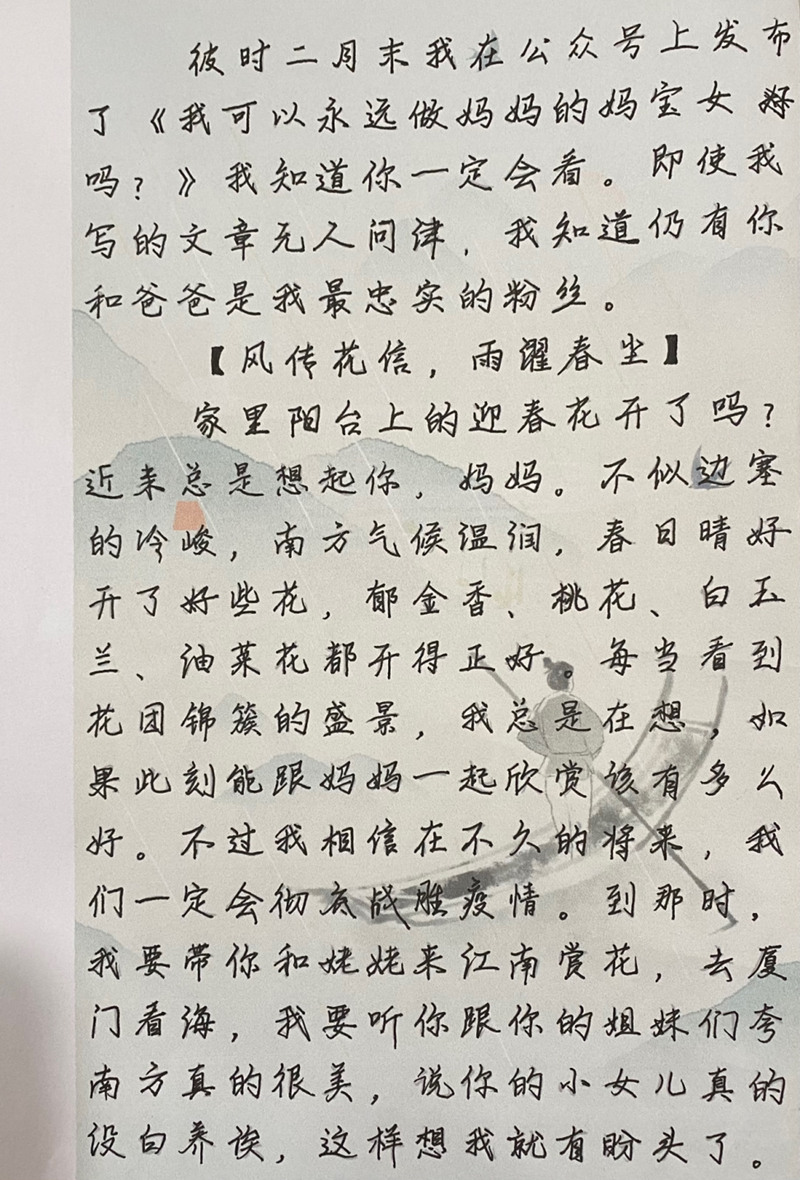 彼时二月末我在公众号上发布
了《我可以永远做妈妈的妈宝女好
吗？》我知道你一定会看。即使我
写的文章无人问津，我知道仍有你
和爸爸是我最忠实的粉丝。
【风传花信，雨濯春尘】
家里阳台上的迎春花开了吗？
近来总是想起你，妈妈。不似边塞
的冷峻，南方气候温润，春日晴好
开了好些花，郁金香、桃花、白玉
兰、油菜花都开得正好。每当看到
花团锦簇的盛景，我总是在想，如
果此刻能跟妈妈一起欣赏该有多么
好。不过我相信在不久的将来，我
们一定会彻底战胜疫情。到那时，
我要带你和姥姥来江南赏花，去厦
门看海，我要听你跟你的姐妹们夸
南方真的很美，说你的小女儿真的
没白养诶，这样想我就有盼头了。